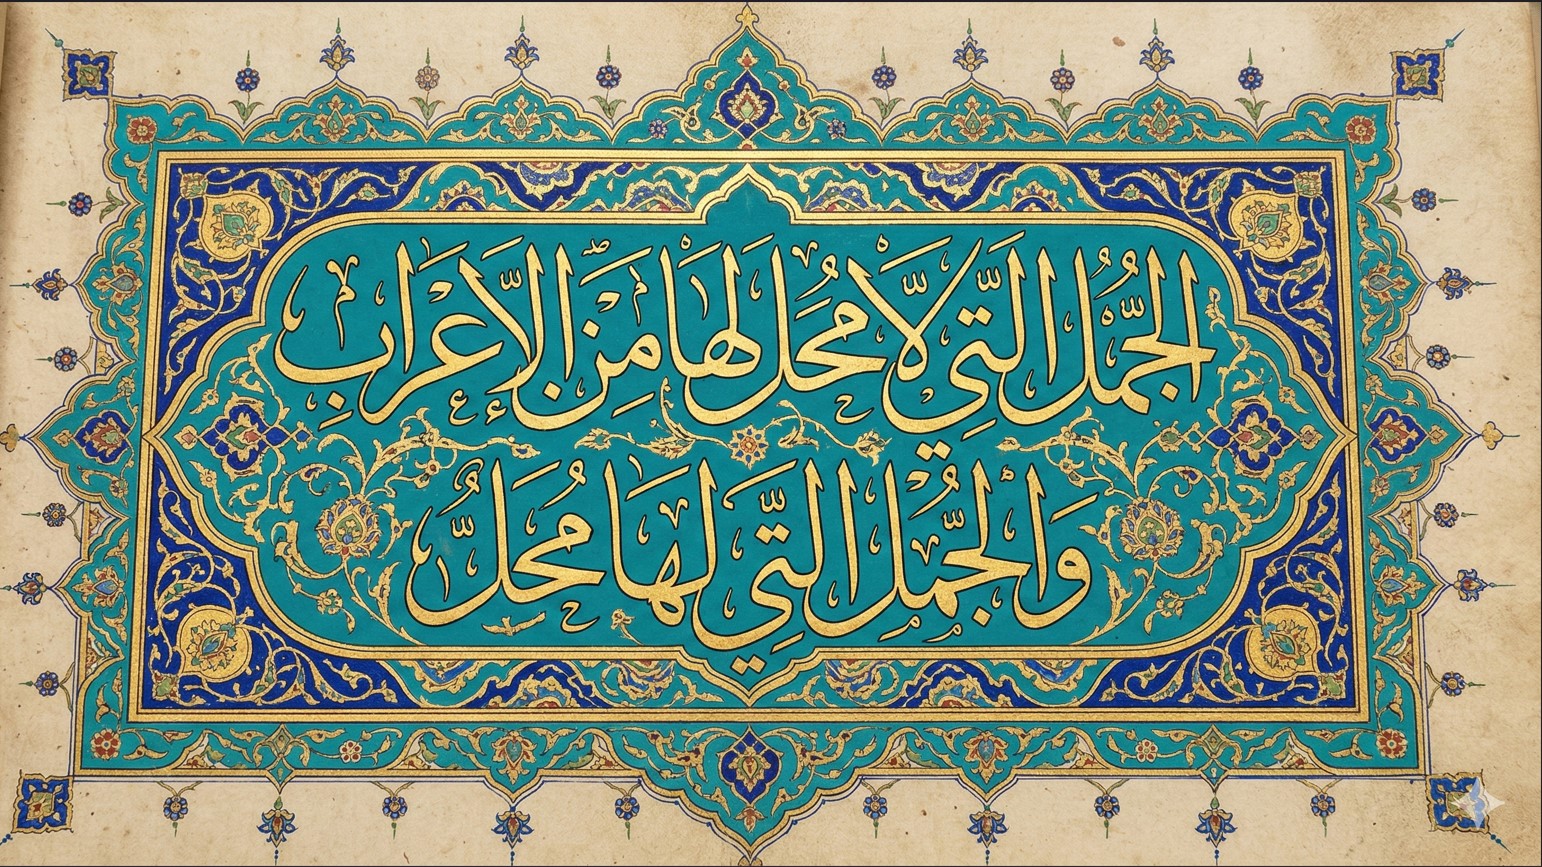 الجُمَل الَّتِي لَا مَحَل لَهَا مِنَ الإِعْرَابِ
وَالجُمَل الَّتِي لَهَا مَحَلٌّ